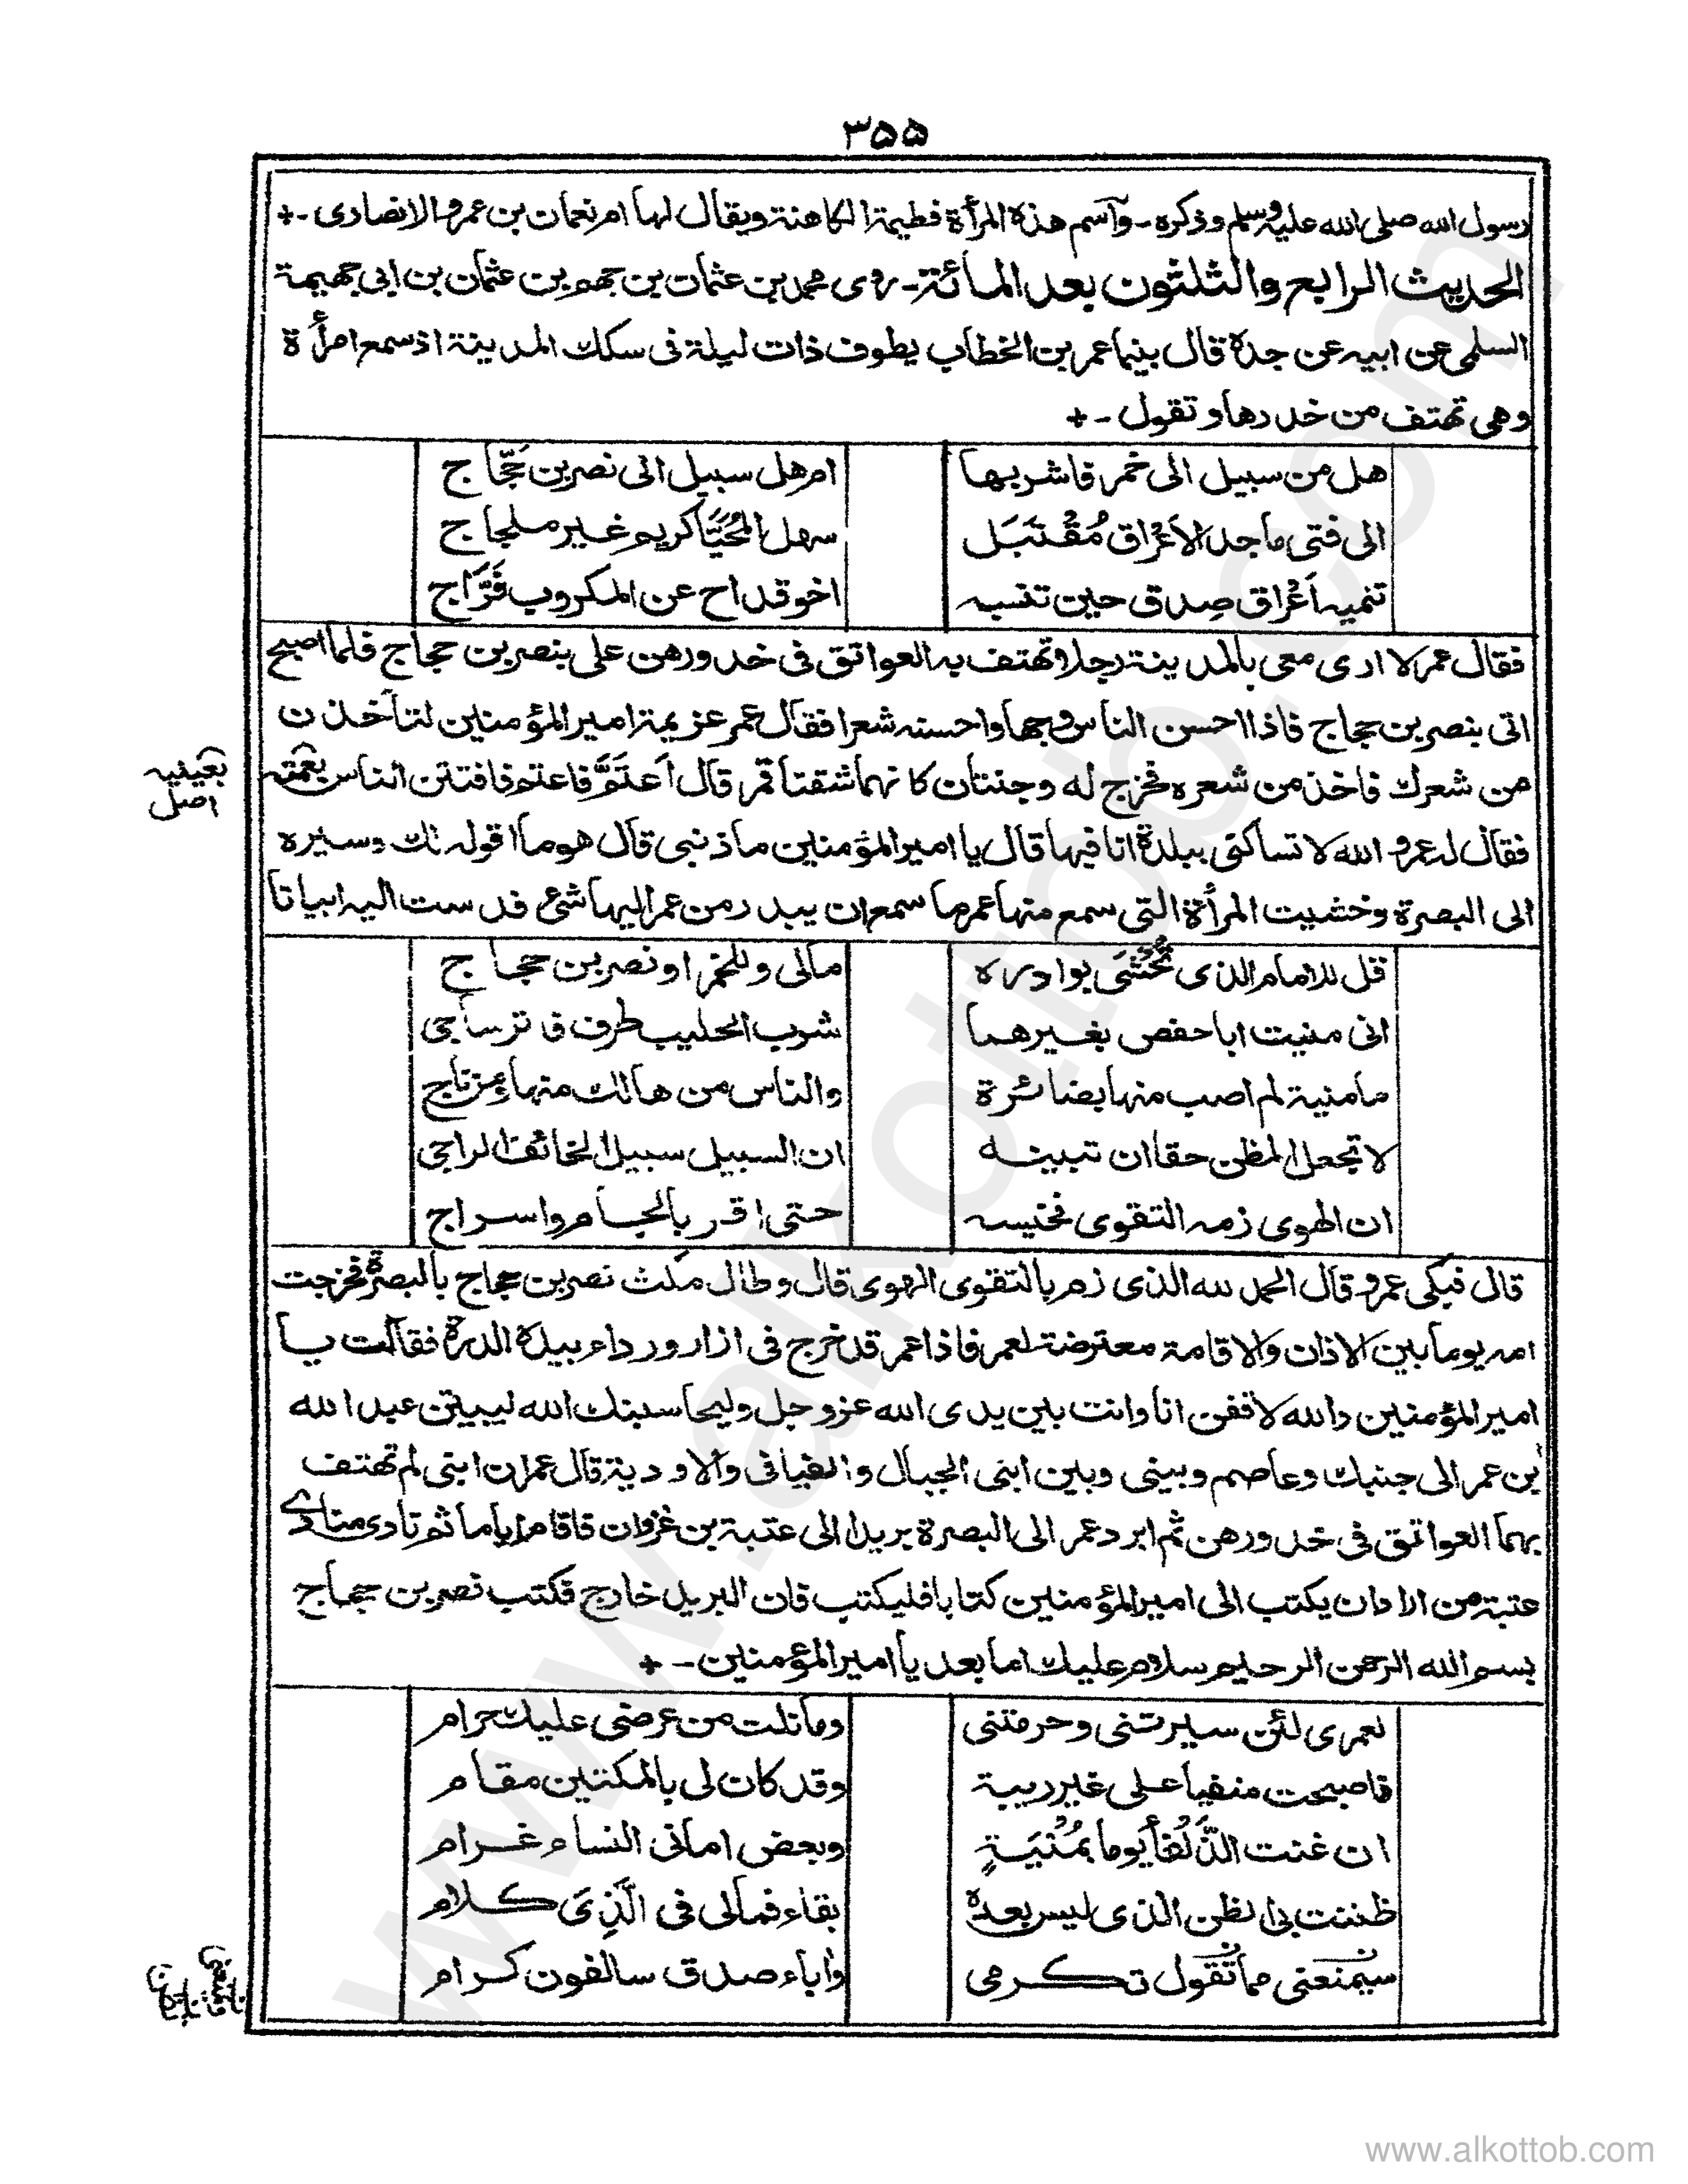 ٣٥٥
رسول الله صلى الله عليه وسلم وذكره - وآسم هذه المرأة فطيمة الكاهنة ويقال لها ام نعمان بن عمرو الانصارى - +
الحديث الرابع والثلثون بعد المائة - روى محمد بن عثمان بن جهم بن عثمان بن ابى جهيمة
السلمى عن ابيه عن جده قال بينما عمر بن الخطاب يطوف ذات ليلة فى سكك المدينة اذ سمع امرأة
وهى تهتف من خدرها وتقول - +
هل من سبيل الى خمر فاشربها ام هل سبيل الى نصر بن حَجّاج
الى فتى ماجد الاَعْراق مُقْتَبَل سهل المُحَيَّا كريم غير ملجاج
تنميه اَعْراق صِدق حين تنسبه اخو قداح عن المكروب فَرَّاج
فقال عمر لا ارى معى بالمدينة رجلا تهتف به العواتق فى خدورهن على بنصر بن حجاج فلما اصبح
اتى بنصر بن حجاج فاذا احسن الناس وجها واحسنه شعرا فقال عمر عزيمة امير المؤمنين لتأخذن
من شعرك فاخذ من شعره فخرج له وجنتان كانهما شقتا قمر قال اَعتَمَّ فاعتم فافتتن الناس بعمته
بعينيه
اصل
فقال له عمر والله لا تساكنى ببلدة انا فيها قال يا امير المؤمنين ما ذنبى قال هو ما اقوله لك وسيره
الى البصرة وخشيت المرأة التى سمع منها عمر ما سمع ان يبدر من عمر اليها شئ فدست اليه ابياتا
قل للامام الذى تُخْشَى بوادره مالى وللخمر او نصر بن حجاج
انى منيت ابا حفص بغيرهما شوب الحليب طرف فا تر ساجى
ما منية لم اصب منها بضائرة والناس من هالك منها ومن ناج
لا تجعل الظن حقا ان تبينه ان السبيل سبيل الخائف الراجى
ان الهوى زمه التقوى فخيسه حتى اقر بالجام واسراج
قال فبكى عمر وقال الحمد لله الذى زم بالتقوى الهوى قال وطال مكث نصر بن حجاج بالبصرة فخرجت
امه يوما بين الاذان والاقامة معترضة لعمر فاذا عمر قد خرج فى ازار ورداء بيده الدرة فقالت يا
امير المؤمنين والله لاقفن انا وانت بين يدى الله عز وجل وليحاسبنك الله ليبيتن عبد الله
بن عمر الى جنبك وعاصم وبينى وبين ابنى الجبال والفيافى والاودية قال عمر ان ابنى لم تهتف
بهما العواتق فى خدورهن ثم ابرد عمر الى البصرة بريدا الى عتبة بن غزوان فاقام اياما ثم نادى منادى
عتبة من اراد ان يكتب الى امير المؤمنين كتابا فليكتب فان البريد خارج فكتب نصر بن حجاج
بسم الله الرحمن الرحيم سلام عليك اما بعد يا امير المؤمنين - +
لعمرى لئن سيرتنى وحرمتنى وما نلت من عرضى عليك حرام
فاصبحت منفيا على غير ريبة وقد كان لى بالمكتين مقام
ان غنت الذَّلفُأ يوما بمُنْيَةٍ وبعض امانى النساء غرام
ظننت بى الظن الذى ليس بعده بقاء فمالى فى الَّذِىَ كلام
سيمنعنى مما تقول تكرمى واباء صدق سالفون كرام
www.alkottob.com
www.alkottob.com